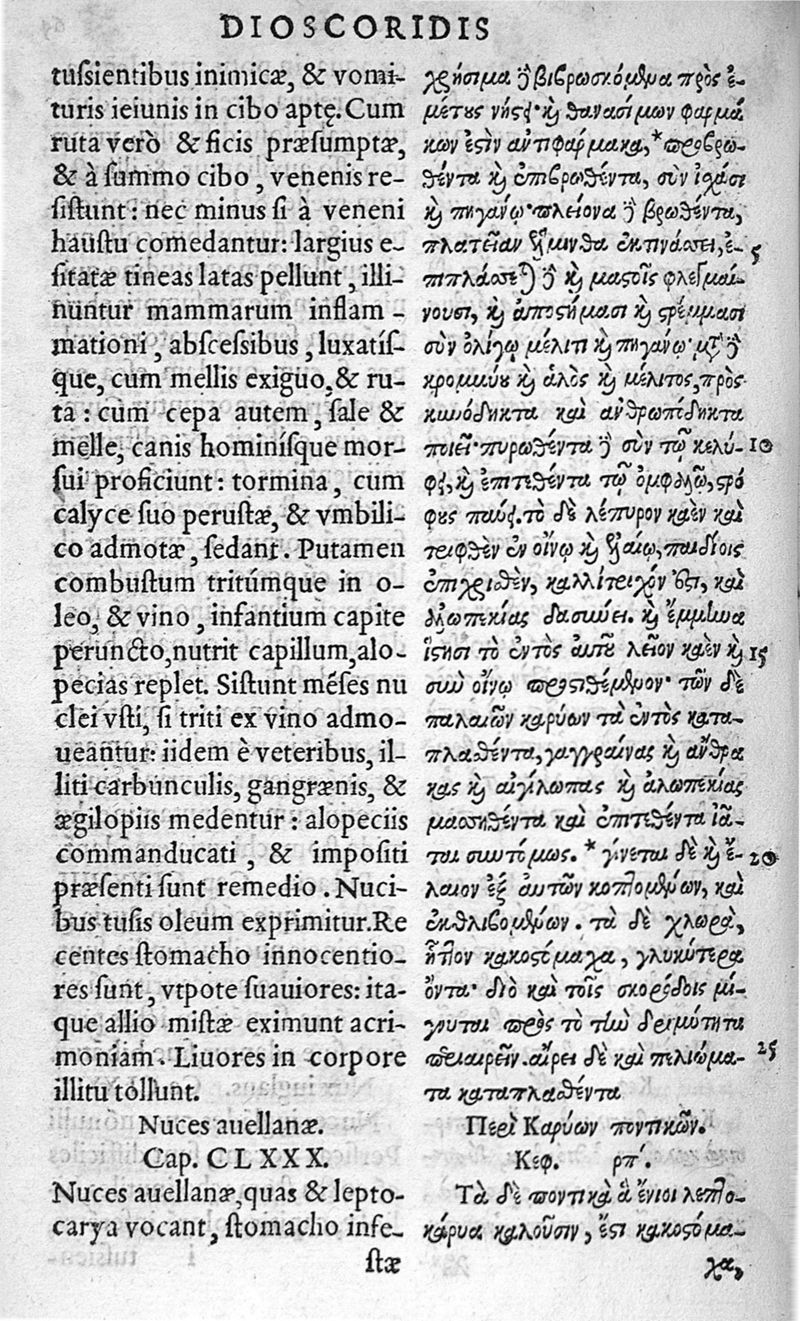 DIOSCORIDIS
tussientibus inimicæ, & vomi-
turis ieiunis in cibo aptę. Cum
ruta verò & ficis præsumptæ,
& à summo cibo, venenis re-
sistunt: nec minus si à veneni
haustu comedantur: largius e-
sitatæ tineas latas pellunt, illi-
nuntur mammarum inflam-
mationi, abscessibus, luxatís-
que, cum mellis exiguo, & ru-
ta: cum cepa autem, sale &
melle, canis hominísque mor-
sui proficiunt: tormina, cum
calyce suo perustæ, & vmbili-
co admotæ, sedant. Putamen
combustum tritúmque in o-
leo, & vino, infantium capite
peruncto, nutrit capillum, alo-
pecias replet. Sistunt mẽses nu
clei vsti, si triti ex vino admo-
ueantur: iidem è veteribus, il-
liti carbunculis, gangrænis, &
ægilopiis medentur: alopeciis
commanducati, & impositi
præsenti sunt remedio. Nuci-
bus tusis oleum exprimitur. Re
centes stomacho innocentio-
res sunt, vtpote suauiores: ita-
que allio mistæ eximunt acri-
moniam. Liuores in corpore
illitu tollunt.
Nuces auellanæ.
Cap. CLXXX.
Nuces auellanæ, quas & lepto-
carya vocant, stomacho infe-
stæ
χρήσιμα ἢ βιβρωσκόμενα πρὸς ἐ-
μέτους νήστει· καὶ θανασίμων φαρμά
κων ἐστὶν ἀντιφάρμακα, *προβρω-
θέντα καὶ ἐπιβρωθέντα, σὺν ἰχάσι
καὶ πηγάνῳ· πλείονα δὲ βρωθέντα,
πλατεῖαν ἕλμινθα ἐκτινάσσει, ἐ- 5
πιπλάσσεται δὲ καὶ μαστοῖς φλεγμαί-
νουσι, καὶ ἀποστήμασι καὶ στρέμμασι
σὺν ὀλίγῳ μέλιτι καὶ πηγάνῳ· μετὰ δὲ
κρομμύου καὶ ἁλὸς καὶ μέλιτος, πρὸς
κυνόδηκτα καὶ ἀνθρωπόδηκτα
ποιεῖ· πυρωθέντα δὲ σὺν τῷ κελύ- 10
φει, καὶ ἐπιτεθέντα τῷ ὀμφαλῷ, στρό
φους παύει. τὸ δὲ λέπυρον καὲν καὶ
τριφθὲν ἐν οἴνῳ καὶ ἐλαίῳ, παιδίοις
ἐπιχρισθὲν, καλλίτριχόν ἐστι, καὶ
ἀλωπεκίας δασύνει. καὶ ἔμμηνα
ἵστησι τὸ ἐντὸς αὐτοῦ λεῖον καὲν καὶ 15
σὺν οἴνῳ προστιθέμενον· τῶν δὲ
παλαιῶν καρύων τὰ ἐντὸς κατα-
πλαθέντα, γαγγραίνας καὶ ἄνθρα
κας καὶ αἰγίλωπας καὶ ἀλωπεκίας
μασσηθέντα καὶ ἐπιτεθέντα ἰᾶ-
ται συντόμως. * γίνεται δὲ καὶ ἔ- 20
λαιον ἐξ αὐτῶν κοπτομένων, καὶ
ἐκθλιβομένων. τὰ δὲ χλωρὰ,
ἧττον κακοστόμαχα, γλυκύτερα
ὄντα· διὸ καὶ τοῖς σκορόδοις μί-
γνυται πρὸς τὸ τὴν δριμύτητα
περιαιρεῖν. αἴρει δὲ καὶ πελιώμα- 25
τα καταπλαθέντα
Περὶ Καρύων ποντικῶν.
Κεφ. ρπ΄.
Τὰ δὲ ποντικὰ ἃ ἔνιοι λεπτο-
κάρυα καλοῦσιν, ἔστι κακοστόμα-
χα,